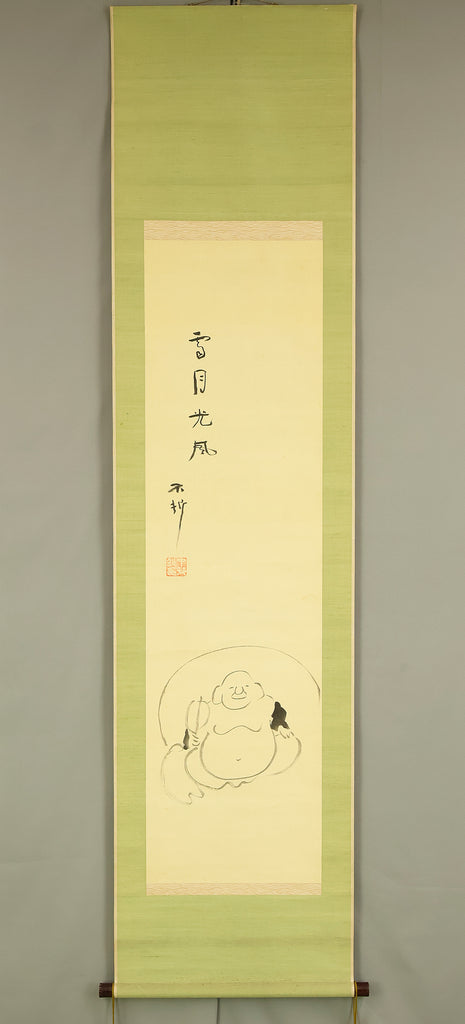 霽月光風
不折